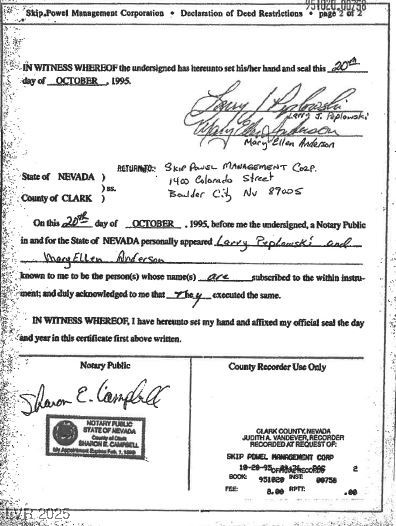 951020.00758
Skip Powel Management Corporation • Declaration of Deed Restrictions • page 2 of 2
IN WITNESS WHEREOF the undersigned has hereunto set his/her hand and seal this 20th
day of OCTOBER , 1995.
Larry J. Peplowski
Larry J. Peplowski
Mary Ellen Anderson
Mary Ellen Anderson
RETURN TO: SKIP POWEL MANAGEMENT CORP.
State of NEVADA )
1400 Colorado Street
) ss.
Boulder City NV 89005
County of CLARK )
On this 20th day of OCTOBER , 1995, before me the undersigned, a Notary Public
in and for the State of NEVADA personally appeared Larry Peplowski and
Mary Ellen Anderson
known to me to be the person(s) whose name(s) are subscribed to the within instru-
ment; and duly acknowledged to me that They executed the same.
IN WITNESS WHEREOF, I have hereunto set my hand and affixed my official seal the day
and year in this certificate first above written.
Notary Public
Sharon E. Campbell
NOTARY PUBLIC
STATE OF NEVADA
County of Clark
SHARON E. CAMPBELL
My Appointment Expires Feb. 1,
County Recorder Use Only
CLARK COUNTY, NEVADA
JUDITH A. VANDEVER, RECORDER
RECORDED AT REQUEST OF:
SKIP POWEL MANAGEMENT CORP
10-20-95 2
OFFICIAL RECORDS
BOOK: 951020 INST: 00758
FEE: 8.00 RPTT: .00
LVR 2025